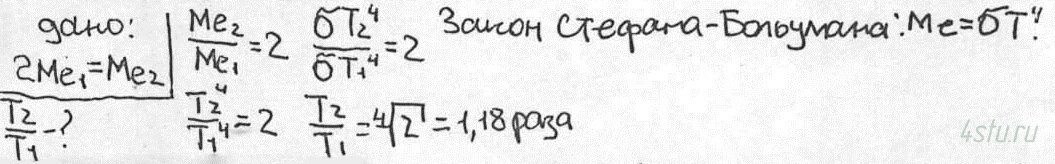 дано:
2Me₁=Me₂
T₂/T₁-?
Me₂/Me₁=2 σT₂⁴/σT₁⁴=2 Закон Стефана-Больцмана: Me=σT⁴.
T₂⁴/T₁⁴=2 T₂/T₁=⁴√2=1,18 раза
4stu.ru